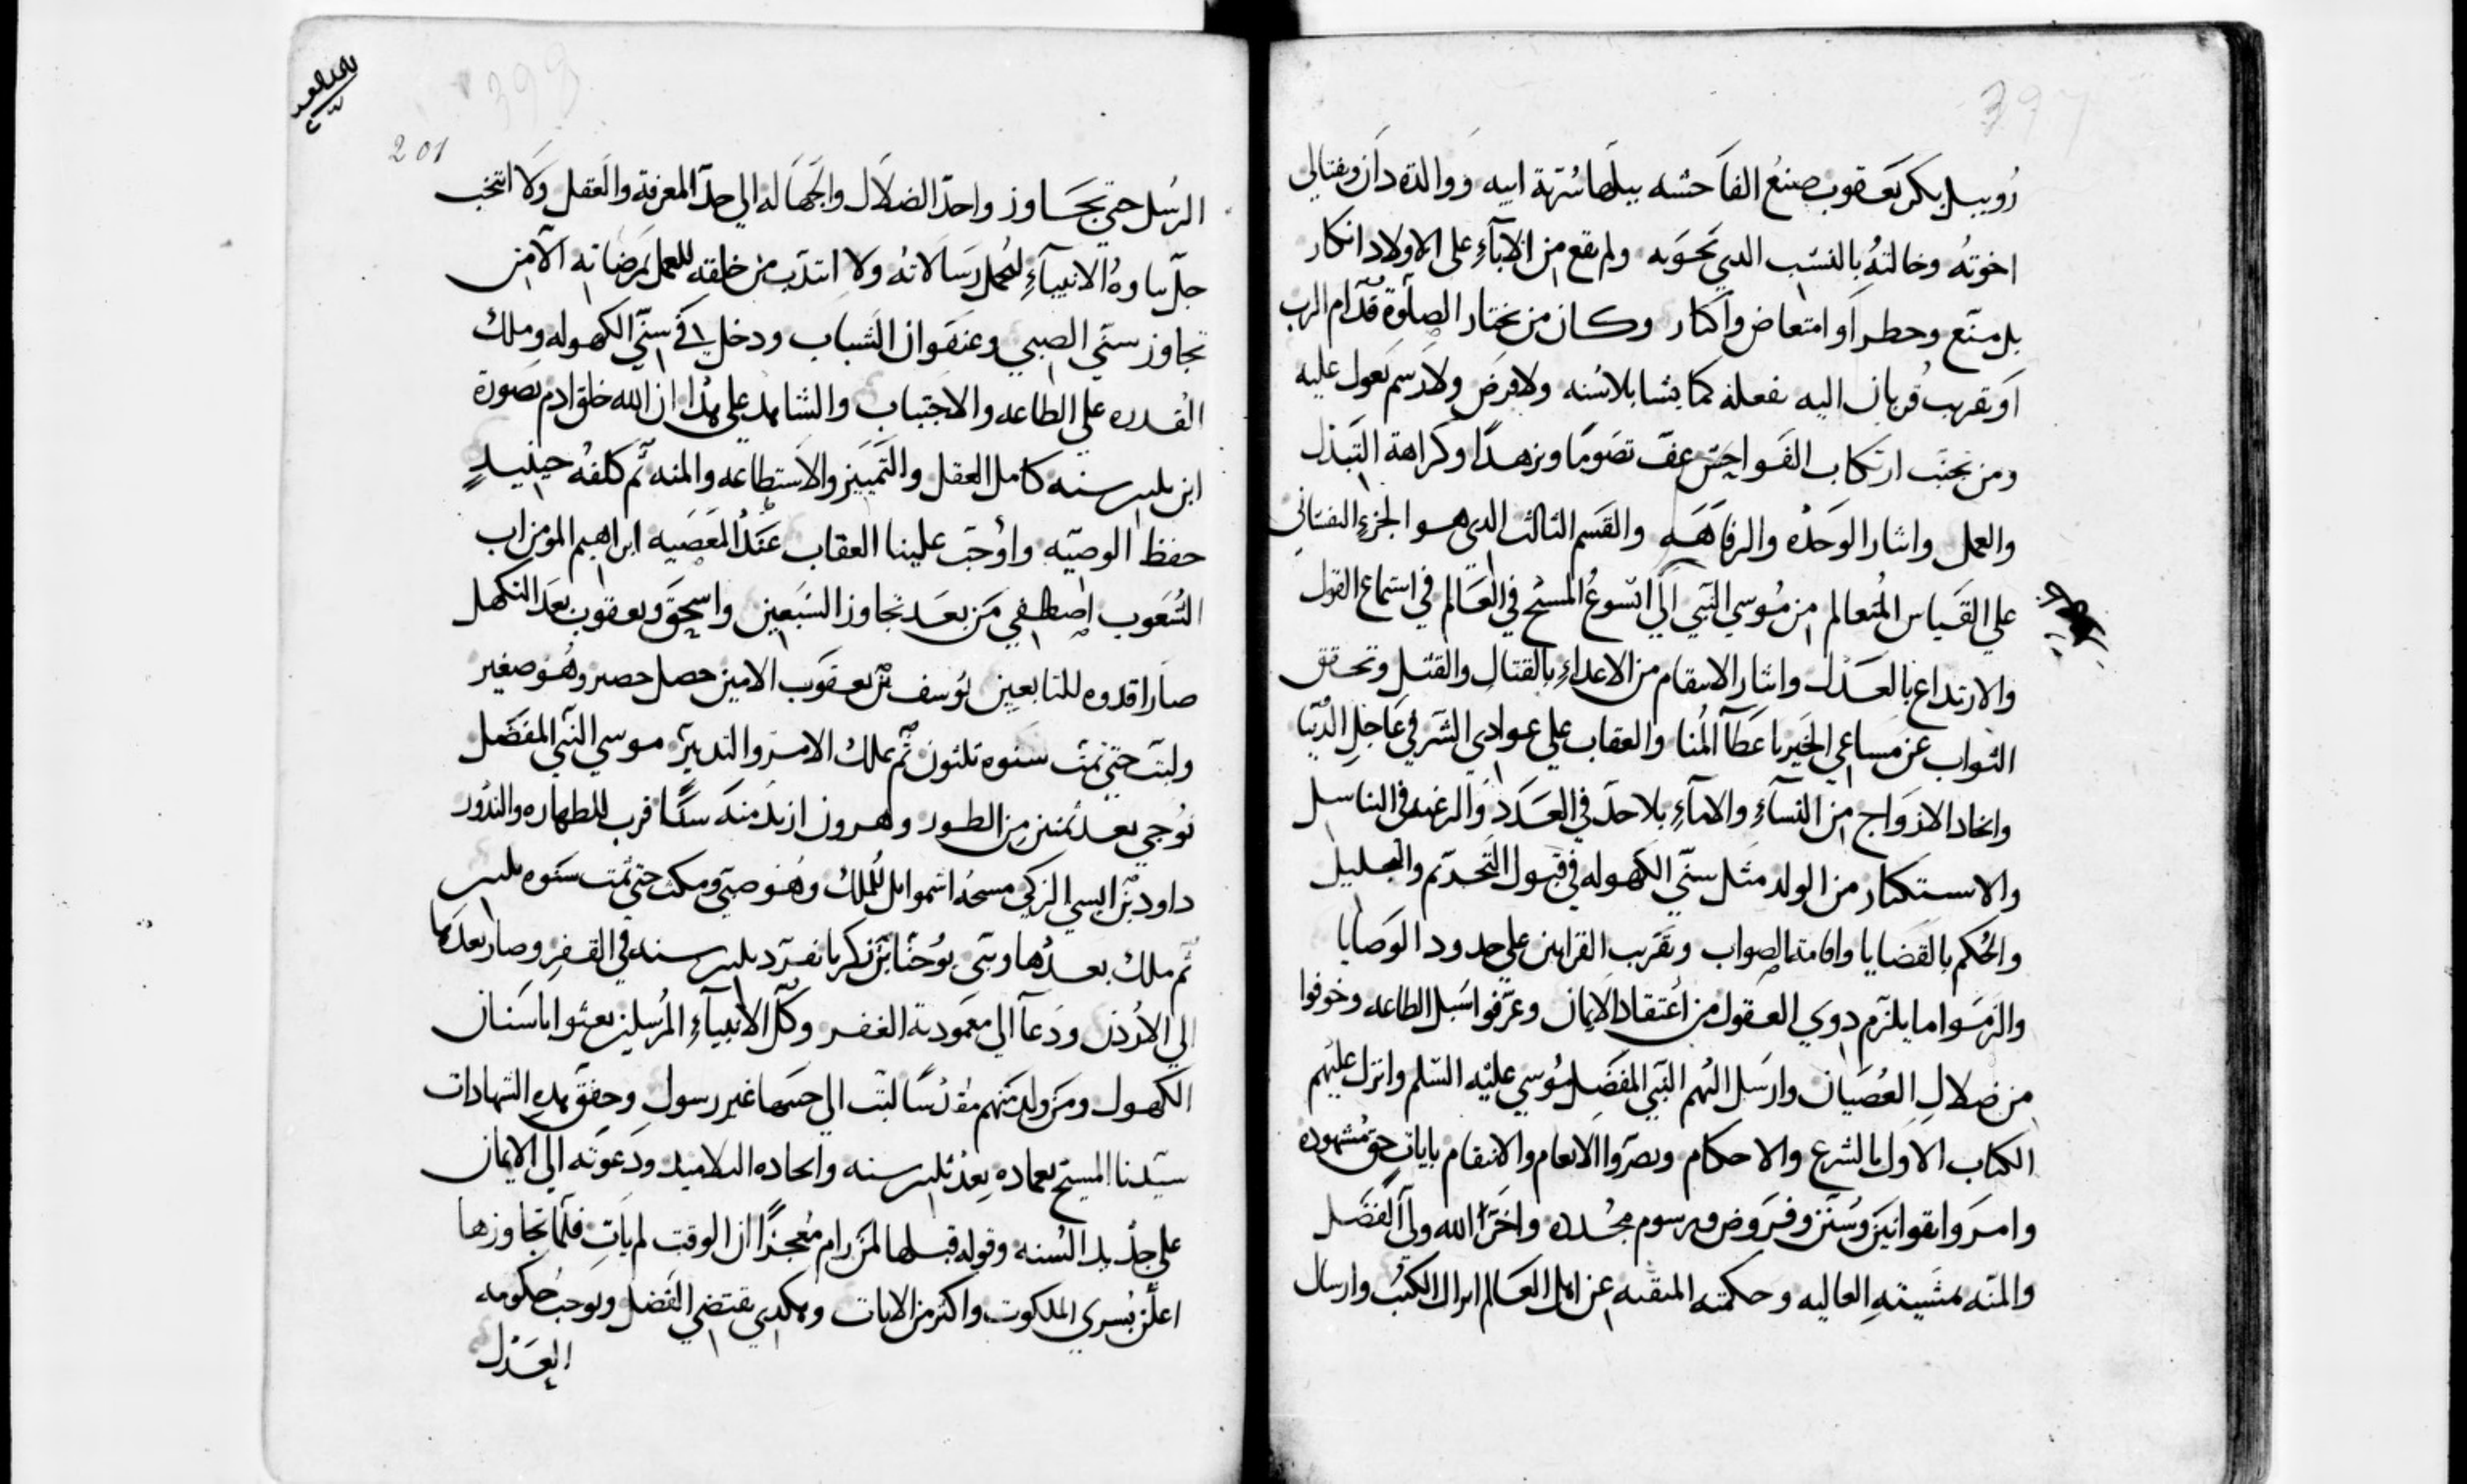 397
روبيل بكر يعقوب صنع الفاحشه ببلها سُرّية ابيه ووالدة دان ونفتالي
اخوتهُ وخالتهُ بالنسب الدي تحويه ولم يقع من الابآءِ على الاولاد انكار
بل منع وحطر او امتعاض واكثار وكان من يختار الصلوة قدّام الرب
او يقرب قربان اليه يفعله كما يشا بلا سُنه ولا فرض ولا رسم يعول عليه
ومن تجنب ارتكاب الفواحش عف تصوّنا وزهدًا وكراهة التبذل
والعمل وايثار الوحده والرفاهه والقسم الثالث الدي هو الجزء النفساني
علي القياس المُتعالم من مُوسي النبي الي ايسوعُ المسيح في العالم في استماع القول
والارتداع بالعدل وايثار الانتقام من الاعداءِ بالقتالِ والقتل وتحقق
الثواب عن مساعي الخير باعطآ المُنا والعقاب علي عوادي الشر في عاجل الدُنيا
واتخاد الازواج من النسآءِ والامآءِ بلا حدّ في العدد والرغبه في التناسل
والاستكثار من الولد مثل سنّي الكهوله في قبول التحدّم والتحليل
والحُكم بالقضايا واقامة الصواب وتقريب القرابين علي حدود الوصايا
والزموا ما يلزم دوي العقول من اعتقاد الايمان وعرّفوا سُبل الطاعه وخوفوا
من ضلالِ العُصيان وارسل اليهم النبي المفضل مُوسي عليه السّلم وانزل عليهم
الكتاب الاول بالشرع والاحكام وبصروا الانعام والانتقام بايات حق مشهوده
وامروا بقوانين وسُنن وفروض ورسوم محُدده واخر الله ولي الفضل
والمنّه بمشيتهِ العاليه وحكمته المتقنه عن اهل العالم انزال الكتب وارسال
398
201
الرسُل حتي تجاوزوا حدّ الضلال والجهاله الي حدّ المعرفة والعقل ولا انتخب
جلّ ثناوهُ الانبيآءِ لتحمل رسالاتهُ ولا انتدب من خلقه للعمل بمرضاته الا من
تجاوز سنّي الصبي وعنفوان الشباب ودخل في سنّي الكهوله وملك
القدره علي الطاعه والاجتباب والشاهد علي هدا ان الله خلق ادم بصورة
ابن تلتين سنه كامل العقل والتمييز والاستطاعه والمنه ثم كلفهُ حينيدٍ
حفظ الوصيّه واوُجب علينا العقاب عند المعصيه ابراهيم المومن اب
الشعوب اصطفي من بعد تجاوز السبعين واسحق ويعقوب بعد التكهل
صارا قدوه للتابعين يُوسف بن يعقوب الامين حصل حصر وهُو صغير
ولبت حتي تمت سنوه تلثون ثم ملك الامر والتدبير موسي النبي المفضل
نوُجي بعد ثمنين من الطور وهرون ازيد منه سنًا قرب للطهاره والندُور
داود بن ايسي الزكي مسحهُ اشموايل للُملك وهُو صبي ومكث حتي تمت سنوه تلتين
ثم ملك بعدُها ونبي يوُحنّا بن زكريا تفرّد تلتين سنه في القفرِ وصار بعدها
الي الاردن ودعآ الي معمودية الغفر وكُل الانبيآءِ المُرسلين بعثوا باسنان
الكهول ومن ولد منهم مقدّسًا لبث الي حينها غير رسولٍ وحقق هده الشهادات
سيّدنا المسيح بعماده بعد تلتين سنه واتخاده التلاميد ودعوته الي الايمان
علي جدّ بلد السُنه وقوله قبلها لمن رام مُعجزًا ان الوقت لم يات فلمّا تجاوزها
اعلن بُسري الملكوت واكتر من الايات وهكدي يقتضي الفضل ويوجب حكومه
العدل